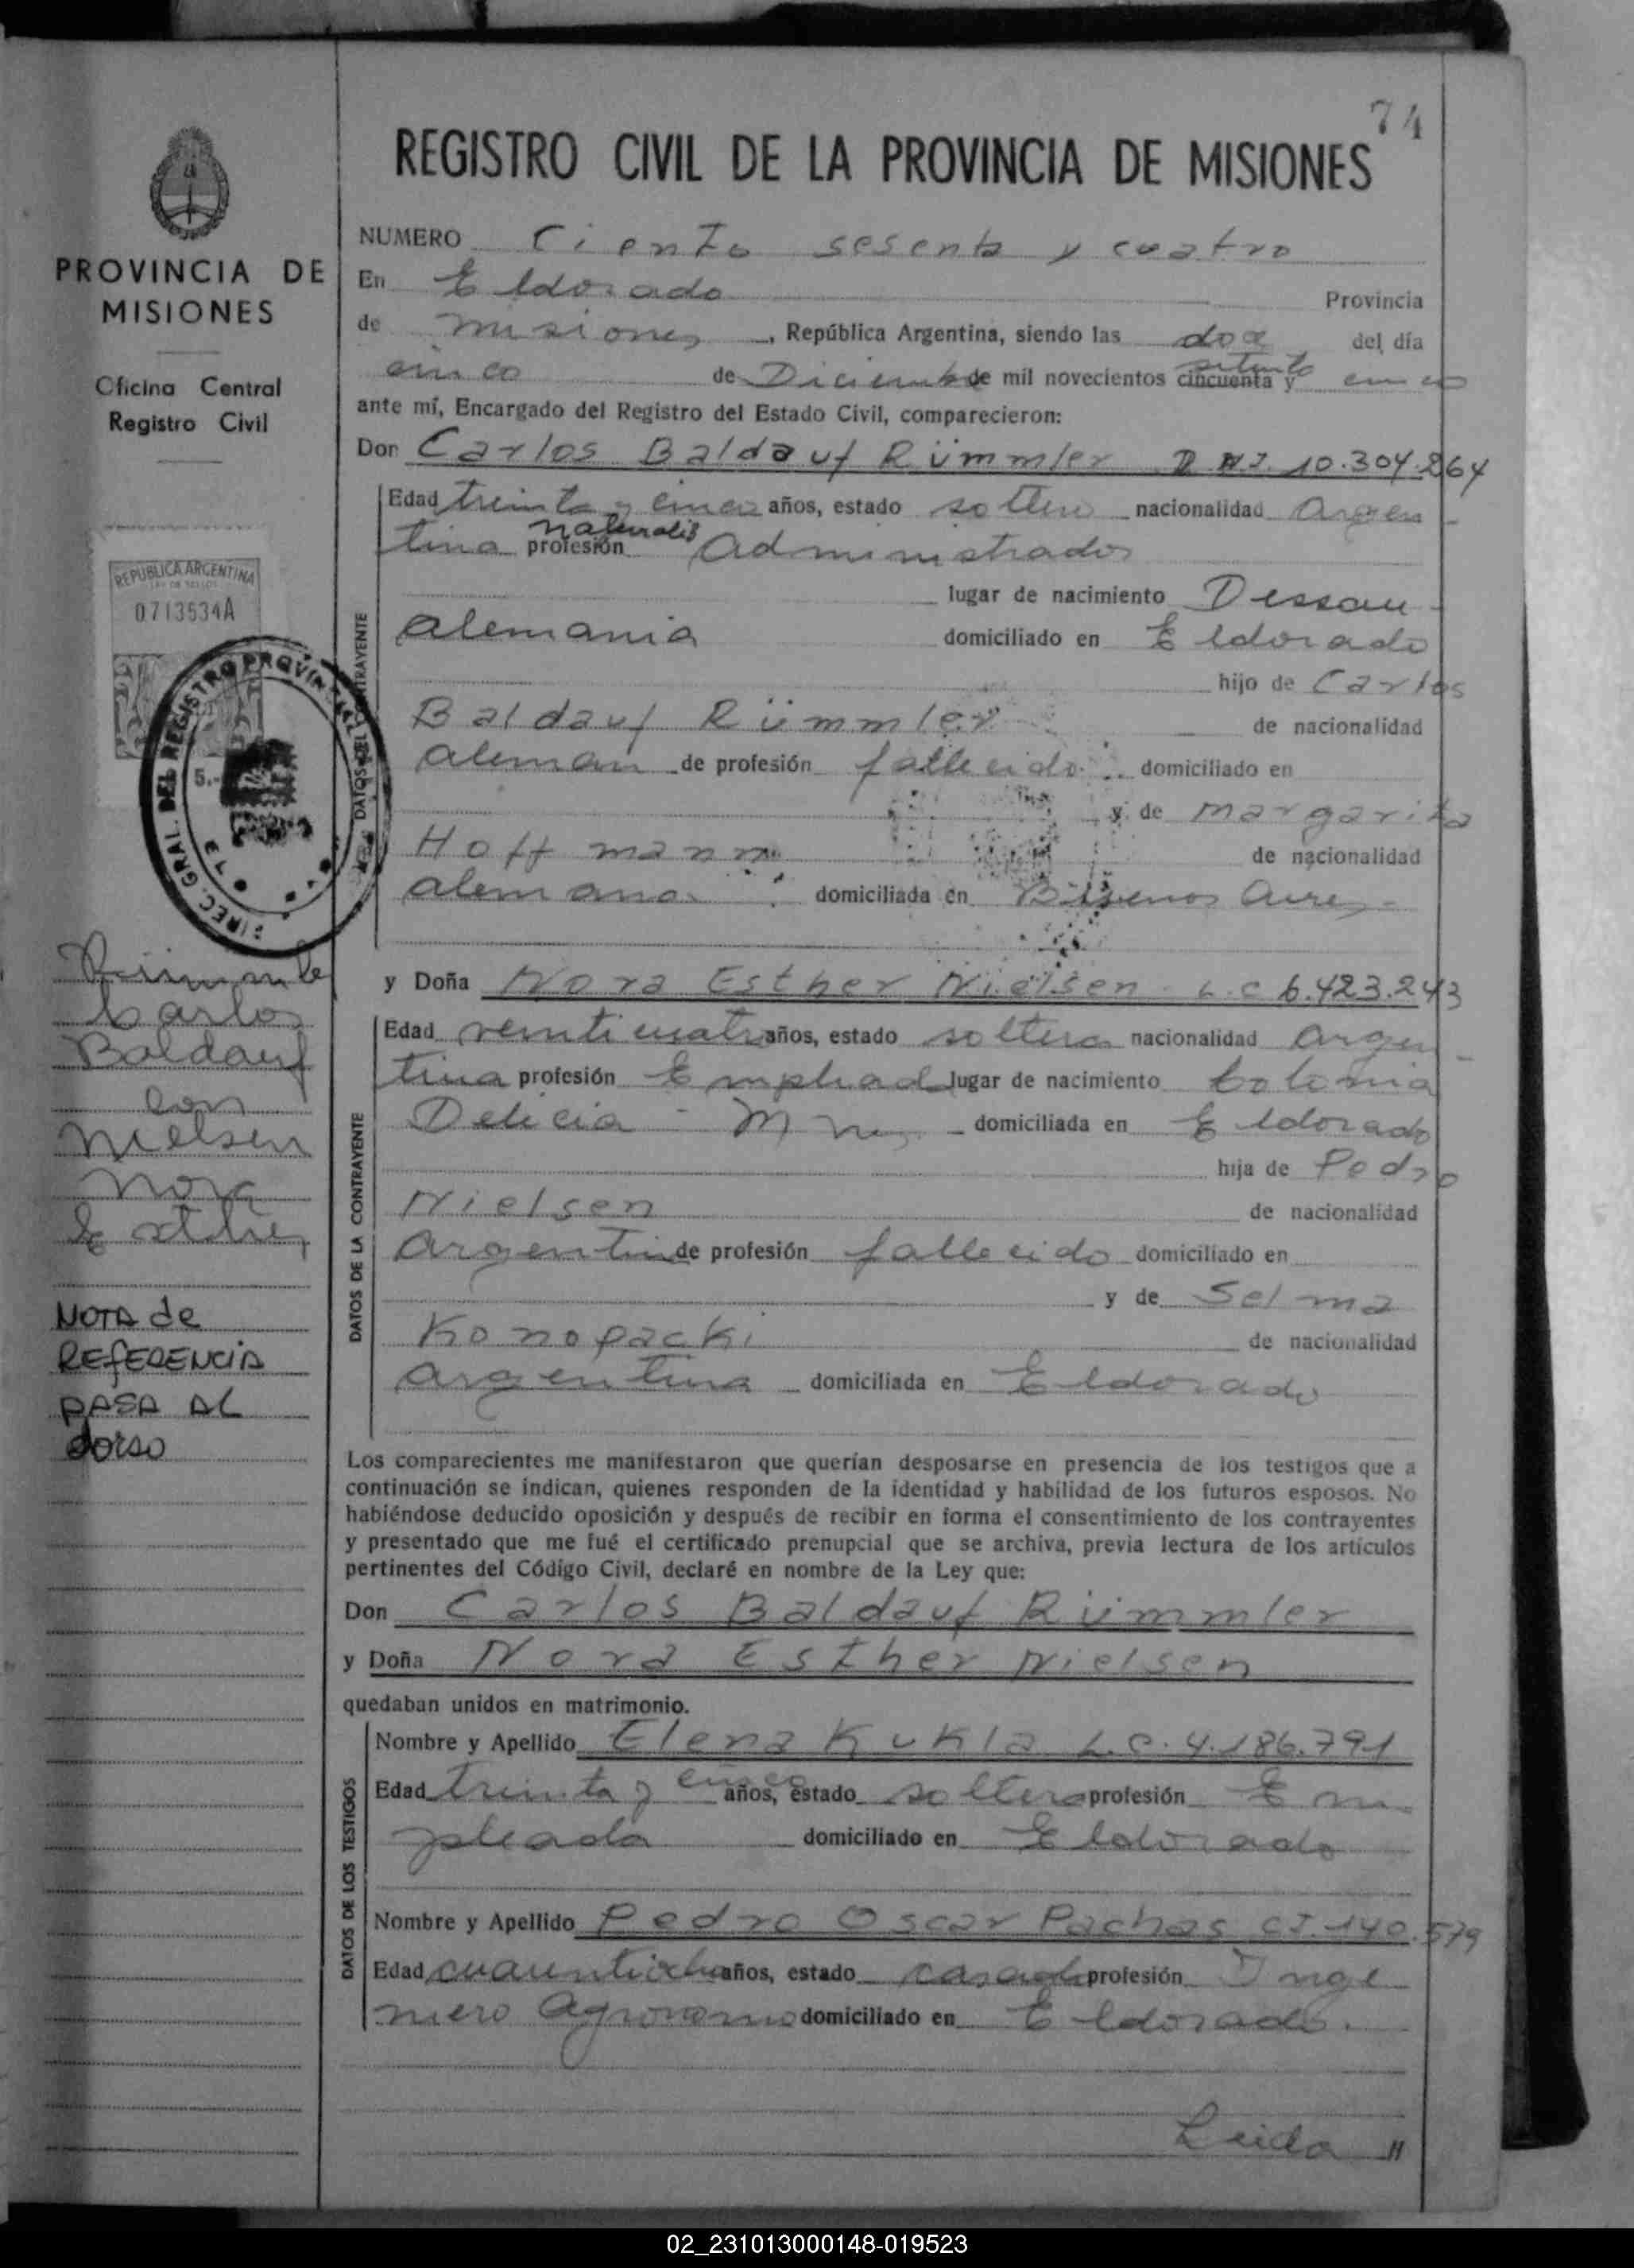 74
REGISTRO CIVIL DE LA PROVINCIA DE MISIONES
PROVINCIA DE
MISIONES
Oficina Central
Registro Civil
REPUBLICA ARGENTINA
LEY DE SELLOS
0713534A
5.-
DIREC. GRAL. DEL REGISTRO PROVINCIAL DE
Carlos
Baldauf
con
Nielsen
Nora
Esther
NOTA de
REFERENCIA
PASA AL
dorso
NUMERO Ciento sesenta y cuatro
En Eldorado Provincia
de Misiones, República Argentina, siendo las doce del día
setenta
cinco de Diciembre de mil novecientos cincuenta y cinco
ante mí, Encargado del Registro del Estado Civil, comparecieron:
Don Carlos Baldauf Rümmler D.N.I. 10.304.264
DATOS DEL CONTRAYENTE
Edad treinta y cinco años, estado soltero nacionalidad Argen-
naturaliz
tina profesión Administrador
lugar de nacimiento Dessau-
Alemania domiciliado en Eldorado
hijo de Carlos
Baldauf Rümmler de nacionalidad
Alemán de profesión fallecido domiciliado en
y de Margarita
Hoffmann de nacionalidad
alemana domiciliada en Buenos Aires-
y Doña Nora Esther Nielsen L.C 6.423.243
DATOS DE LA CONTRAYENTE
Edad veinticuatro años, estado soltera nacionalidad Argen-
tina profesión Empleada lugar de nacimiento Colonia
Delicia - Mnes domiciliada en Eldorado
hija de Pedro
Nielsen de nacionalidad
Argentino de profesión fallecido domiciliado en
y de Selma
Konopacki de nacionalidad
Argentina domiciliada en Eldorado
Los comparecientes me manifestaron que querían desposarse en presencia de los testigos que a
continuación se indican, quienes responden de la identidad y habilidad de los futuros esposos. No
habiéndose deducido oposición y después de recibir en forma el consentimiento de los contrayentes
y presentado que me fué el certificado prenupcial que se archiva, previa lectura de los artículos
pertinentes del Código Civil, declaré en nombre de la Ley que:
Don Carlos Baldauf Rümmler
y Doña Nora Esther Nielsen
quedaban unidos en matrimonio.
DATOS DE LOS TESTIGOS
Nombre y Apellido Elena Kukla L.C. 4.186.791
Edad treinta y cinco años, estado soltera profesión Em-
pleada domiciliado en Eldorado
Nombre y Apellido Pedro Oscar Pachas CI. 140.579
Edad cuarentiocho años, estado casado profesión Inge
niero Agronomo domiciliado en Eldorado.
Leida //
02_231013000148-019523